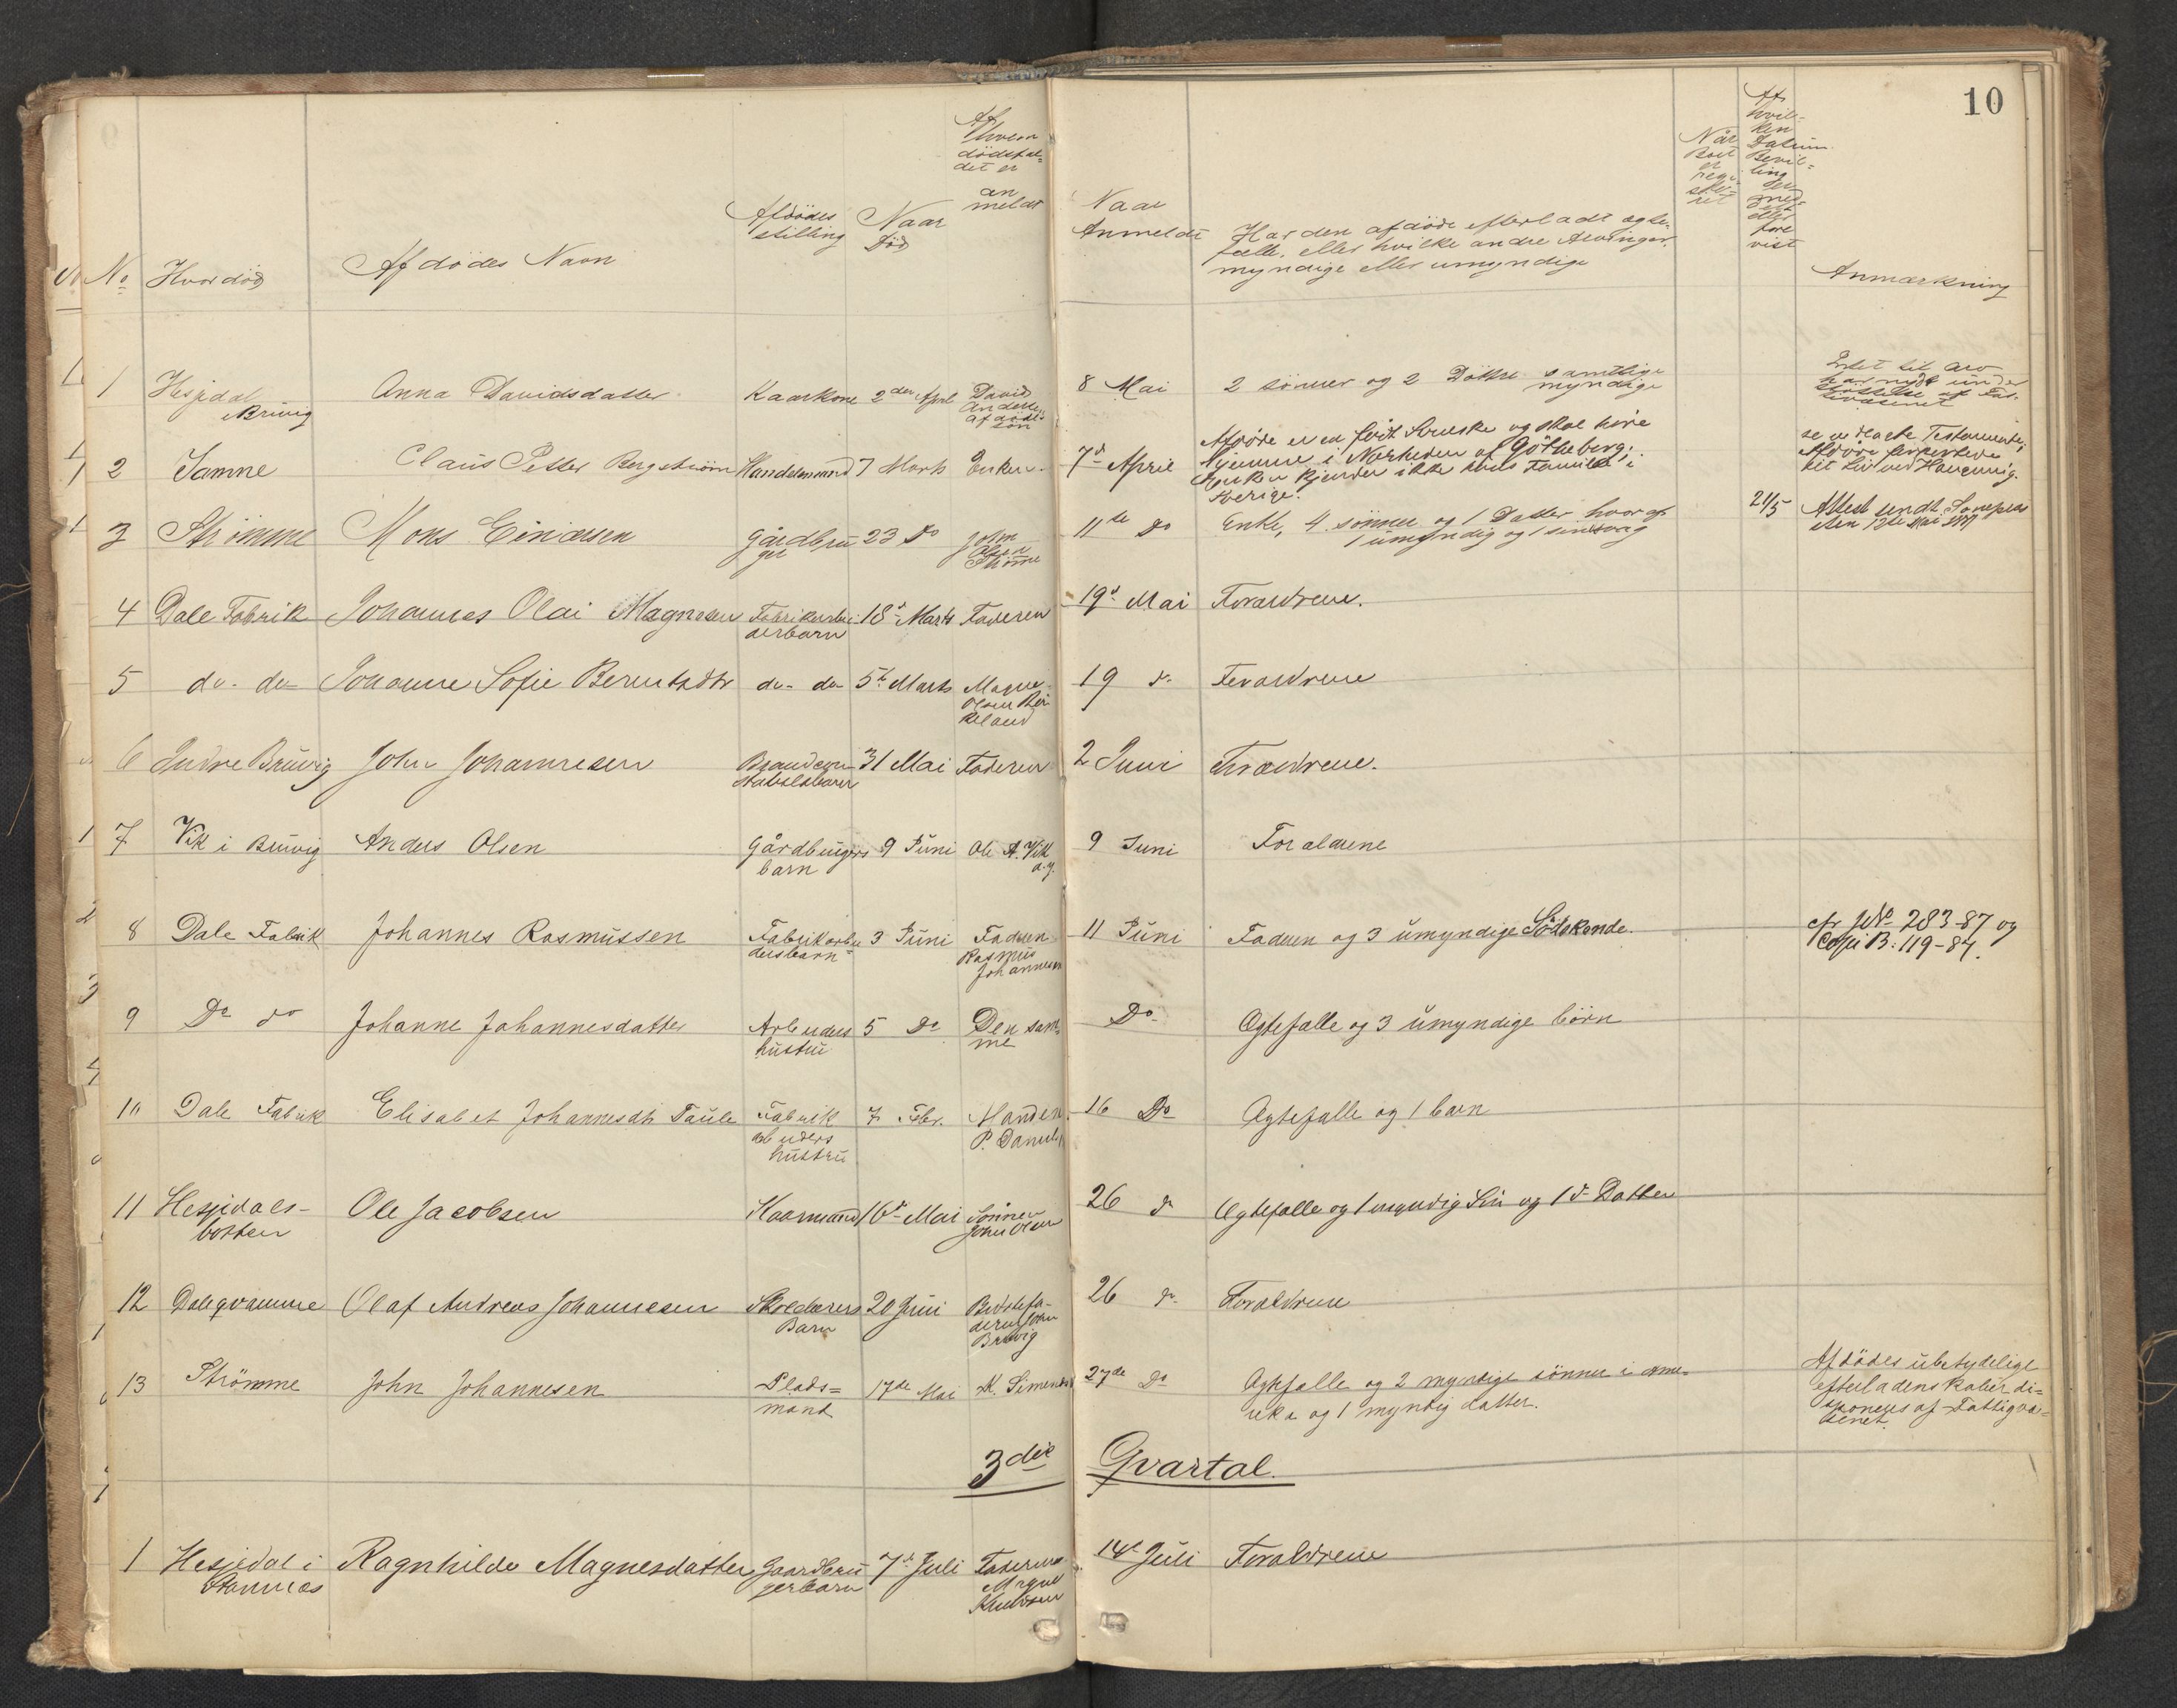 10
No Hvor död Afdödes Navn Afdödes stilling Naar Död Af Hvem dödsfaldet er anmeldt Naar Anmeldt Har den afdöde efterladt ægtefælle, eller hvilke andre Arvinger, myndige eller umyndige Når Boet er regisseret Af hvilken Datum Bevilling er meddelt eller forevist Anmærkning
1 Hesjedal Brüvig Anna Davidsdatter Kaarkone 2den April David Anderss. afdödes sön 8 Mai 2 sönner og 2 Döttre samtlige myndige Intet til Arv har nydt understöttelse af Fattigvæsenet
2 Samne Claus Petter Bergström Handelsmand 7 Marts Enken 7d April Afdöde er en født Svenske og skal höre hjemme i Nærheden af Götheberg; Enken kjender ikke hans Familie i Sverige. se vedlagte Testamente; Afdöde forkortede sit Liv ved Hængning.
3 Strömme Mons Einarsen Gårdbrüger 23 Do John Olsen Strömme 11te Do Enke, 4 sönner og 1 Datter hvoraf 1 ümyndig og 1 sindsvag 21/5 Attest sendt Sorenskr den 12te Mai 1887
4 Dale Fabrik Johannes Olai Magnesen Fabrikarbeiderbarn 18d Marts Faderen 19d Mai Forældrene.
5 do. do Johanne Sofie Berntsdtr do. do 5t Marts Magne Olsen Birkeland 19 do Forældrene
6 Indre Brüvig John Johannesen 31 Mai Faderen 2 Juni Forældrene.
7 Vik i Brüvig Anders Olsen Gårdbrügers barn 9 Jüni Ole A. Vik a.y. 9 Juni Forældrene
8 Dale Fabrik Johannes Rasmüssen Fabrikarbeidersbarn 3 Jüni Faderen Rasmüs Johannesen 11 Jüni Faderen og 3 ümyndige Södskende. cfr JNo 283-87 og Copi B: 119-87.
9 Do do Johanne Johannesdatter Arbeiders hüstrü 5 Do Den samme Do Ægtefælle og 3 ümyndige börn
10 Dale Fabrik Elisabet Johannesdtr Taule Fabrik arbeiders hüstrü 7 Febr. Manden P. Daniels 16 Do Ægtefælle og 1 barn
11 Hesjedalsbotten Ole Jacobsen Kaarmand 16d Mai Sönnen John Olsen 26 do Ægtefælle og 1 myndig Sön og 1 do Datter
12 Daleqvamme Olaf Andreas Johannesen Skolelærers Barn 20 Juni Bedstefaderen John Brüvig 26 do Forældrene
13 Strömme John Johannesen Pladsmand 17de Mai K. Simonds 27de Do Ægtefælle og 2 myndige sönner i Amerika og 1 myndig datter. Afdödes übetydelige efterladenskaber disponeres af Fattigvæsenet
3die Qvartal.
1 Hesjedal i Stamnæs Ragnhilde Magnesdatter Gaardbrügerbarn 7d Juli Faderen Magne Knudsen 14d Juli Forældrene